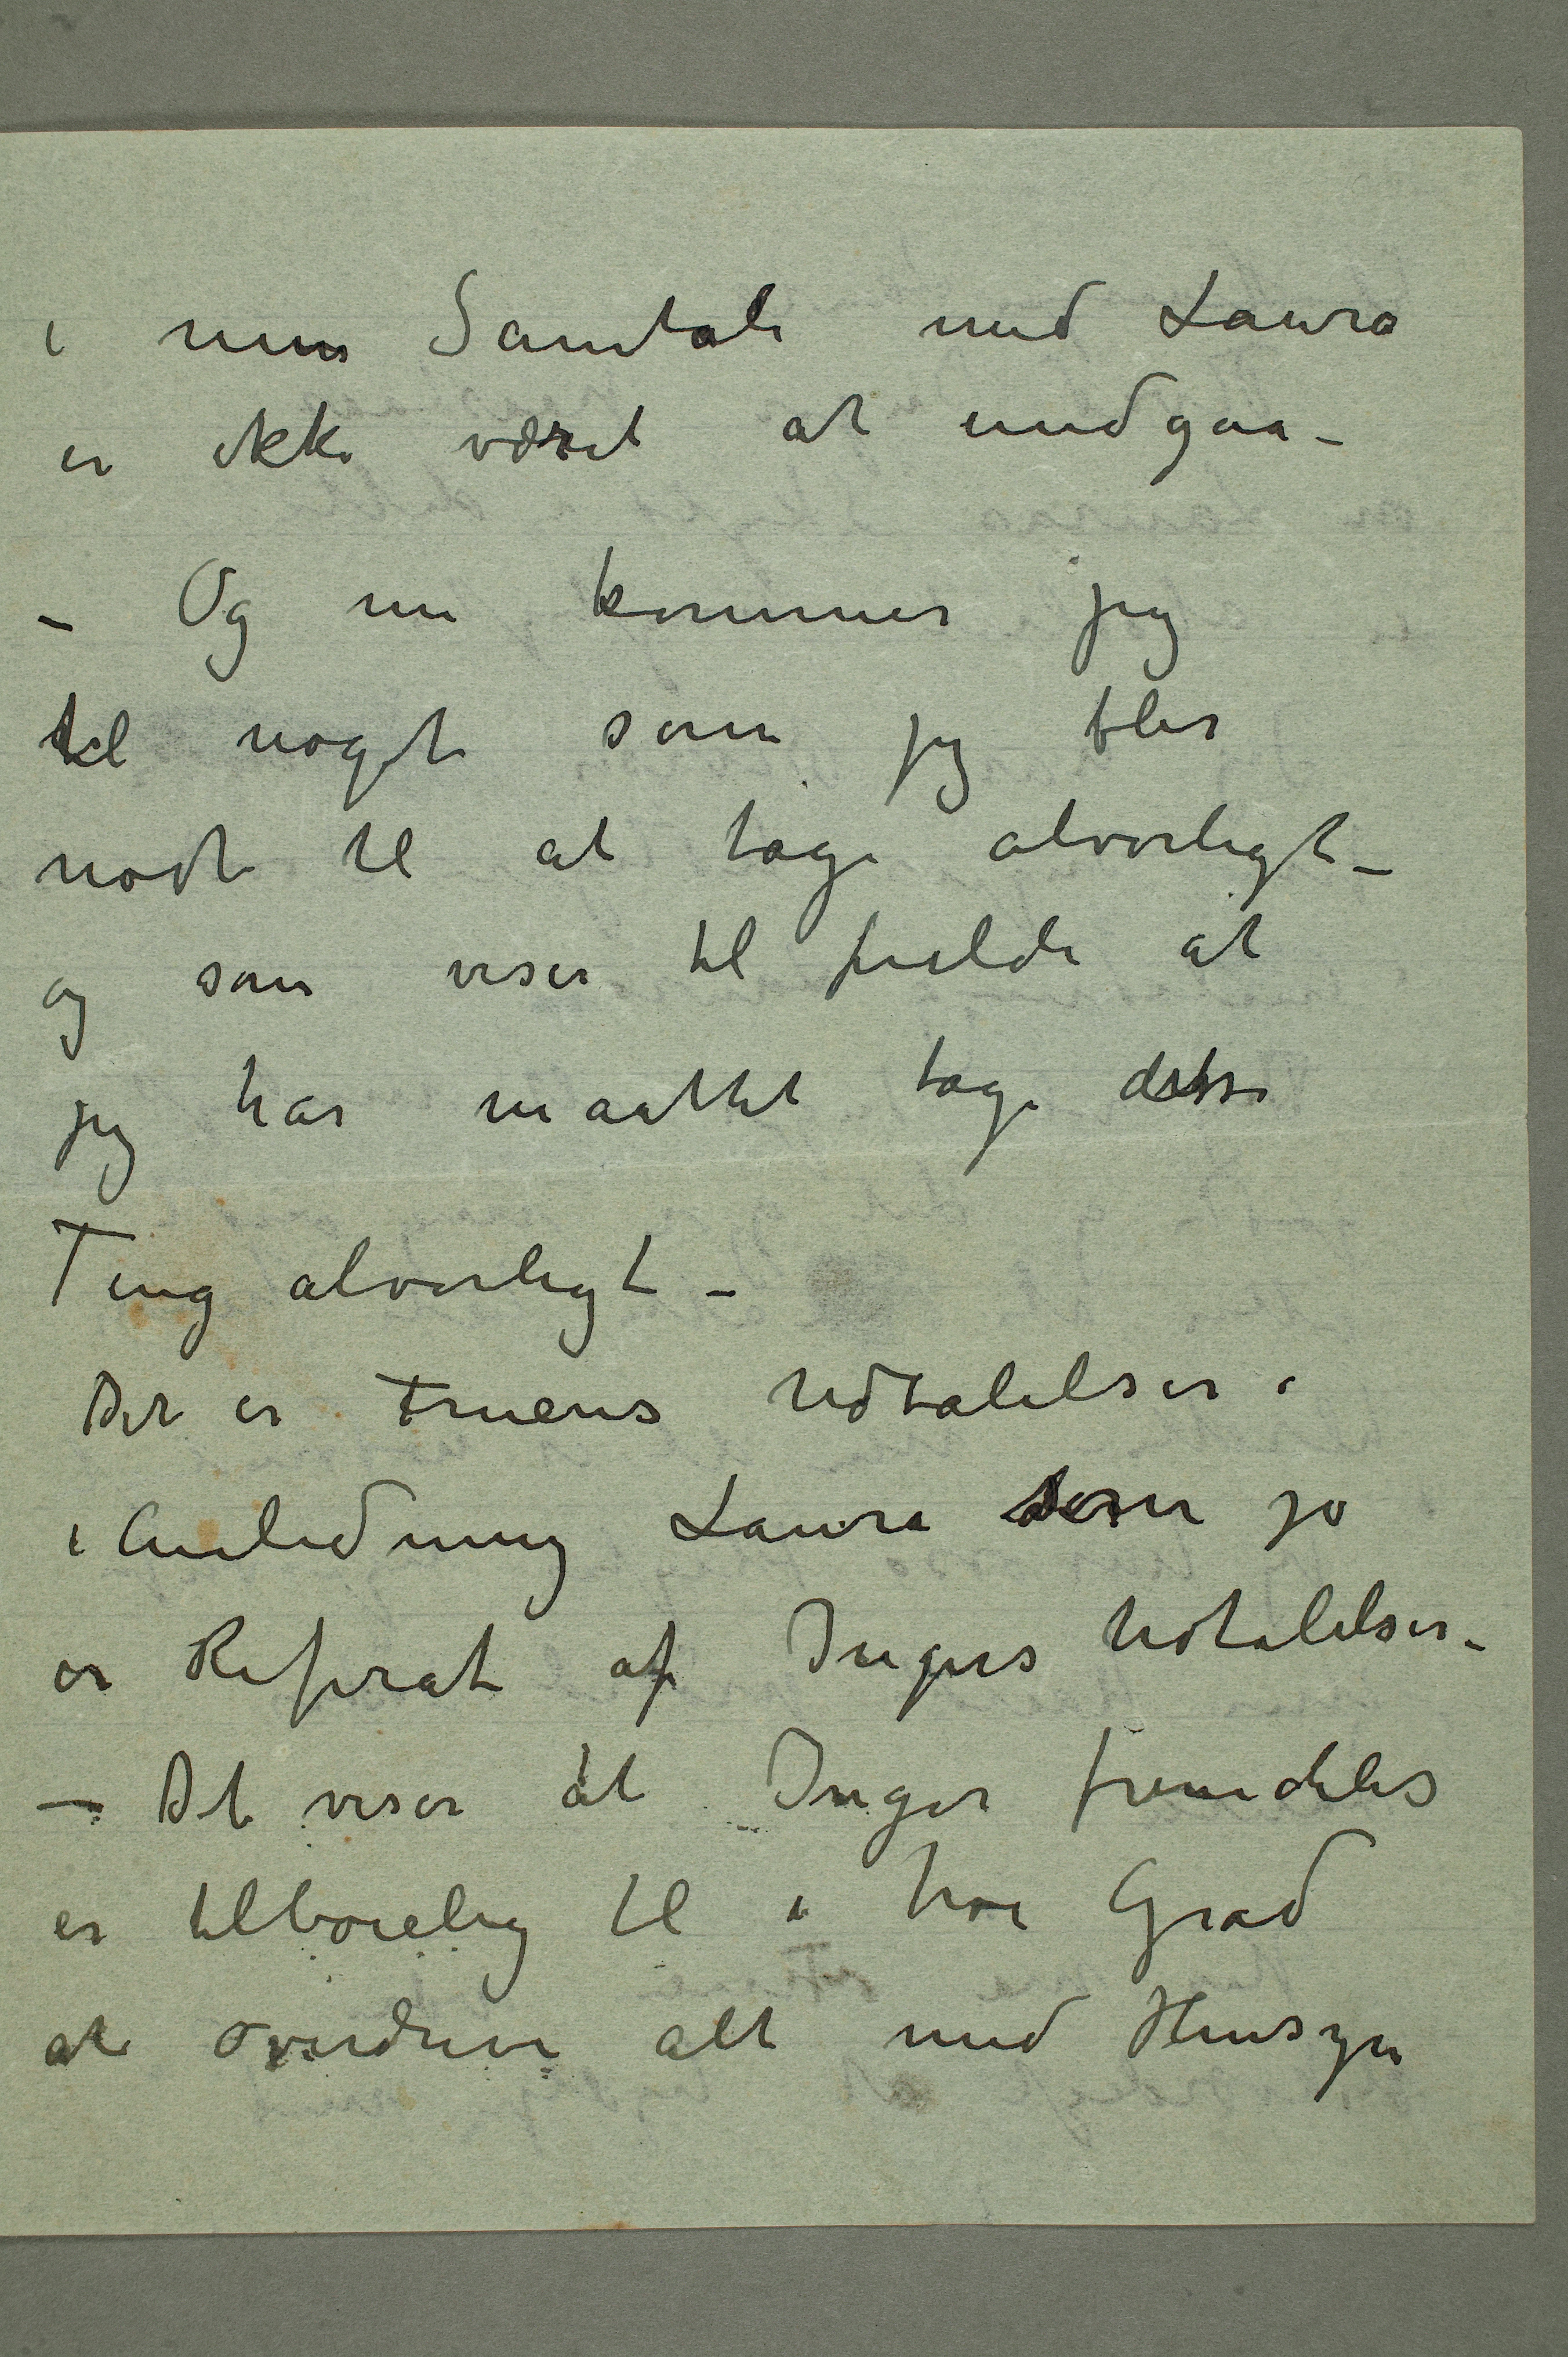 i min Samtale med Laura
er ikke været at undgaa –
– Og nu kommer jeg
til noget som jeg blir
nødt til at tage alvorligt –
og som viser til fulde at
jeg har maattet tage disse
Ting alvorligt –
Det er Fruens Udtalelser i
i Anledning Laura som jo
er Referat af Ingers Udtalelser –
– Det viser at Inger fremdeles
er tilbøielig til i høi Grad
at overdrive alt med Hensyn